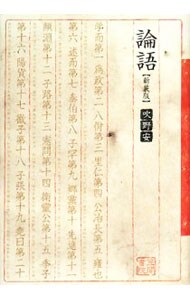 論語
【新装版】
吹野安
学而第一為政第二八佾第三里仁第四公冶長第五雍也
第六述而第七泰伯第八子罕第九郷黨第十先進第十一
顔淵第十二子路第十三憲問第十四衛靈公第十五季氏
第十六陽貨第十七微子第十八子張第十九堯曰第二十
明治書院